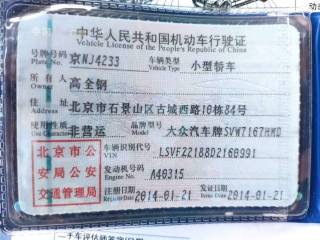 中华人民共和国机动车行驶证
Vehicle License of the People's Republic of China
号牌号码 京NJ4233 车辆类型 小型轿车
Plate No. Vehicle Type
所有人 高全钢
Owner
住址 北京市石景山区古城西路10栋84号
Address
使用性质 非营运 品牌型号 大众汽车牌SVW7167HMD
Use Character Model
北京市公安局公安交通管理局
车辆识别代号 LSVF22188D2160991
VIN
发动机号码 A40315
Engine No.
注册日期 2014-01-21 发证日期 2014-01-21
Register Date Issue Date